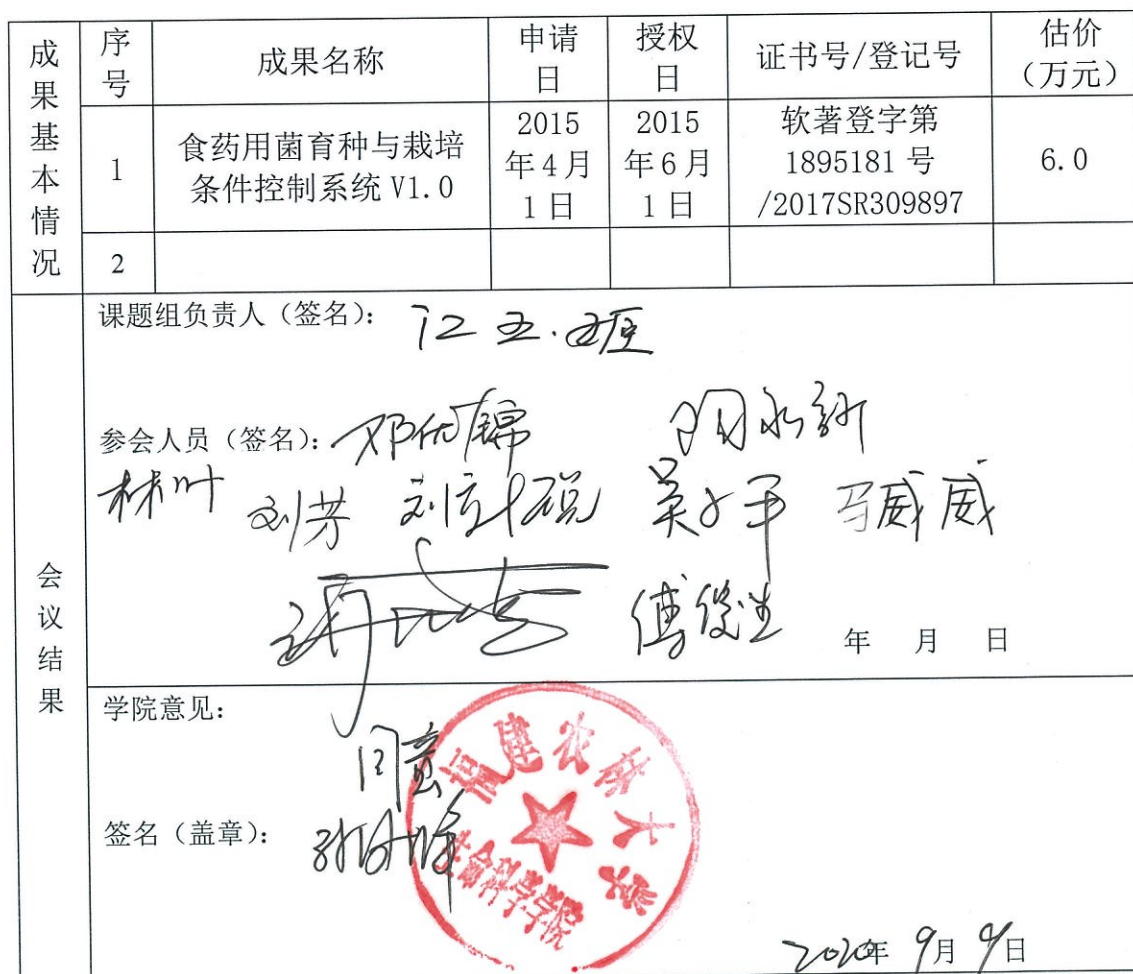 成果基本情况
序号
成果名称
申请日
授权日
证书号/登记号
估价（万元）
1
食药用菌育种与栽培
条件控制系统 V1.0
2015
年4月
1日
2015
年6月
1日
软著登字第
1895181 号
/2017SR309897
6.0
2
会议结果
课题组负责人（签名）：江玉姬
参会人员（签名）：邓优锦
林叶 刘芳 马威威
傅俊生 年 月 日
学院意见：
同意
签名（盖章）：
福建农林大学
生命科学学院
2020年 9月 9日